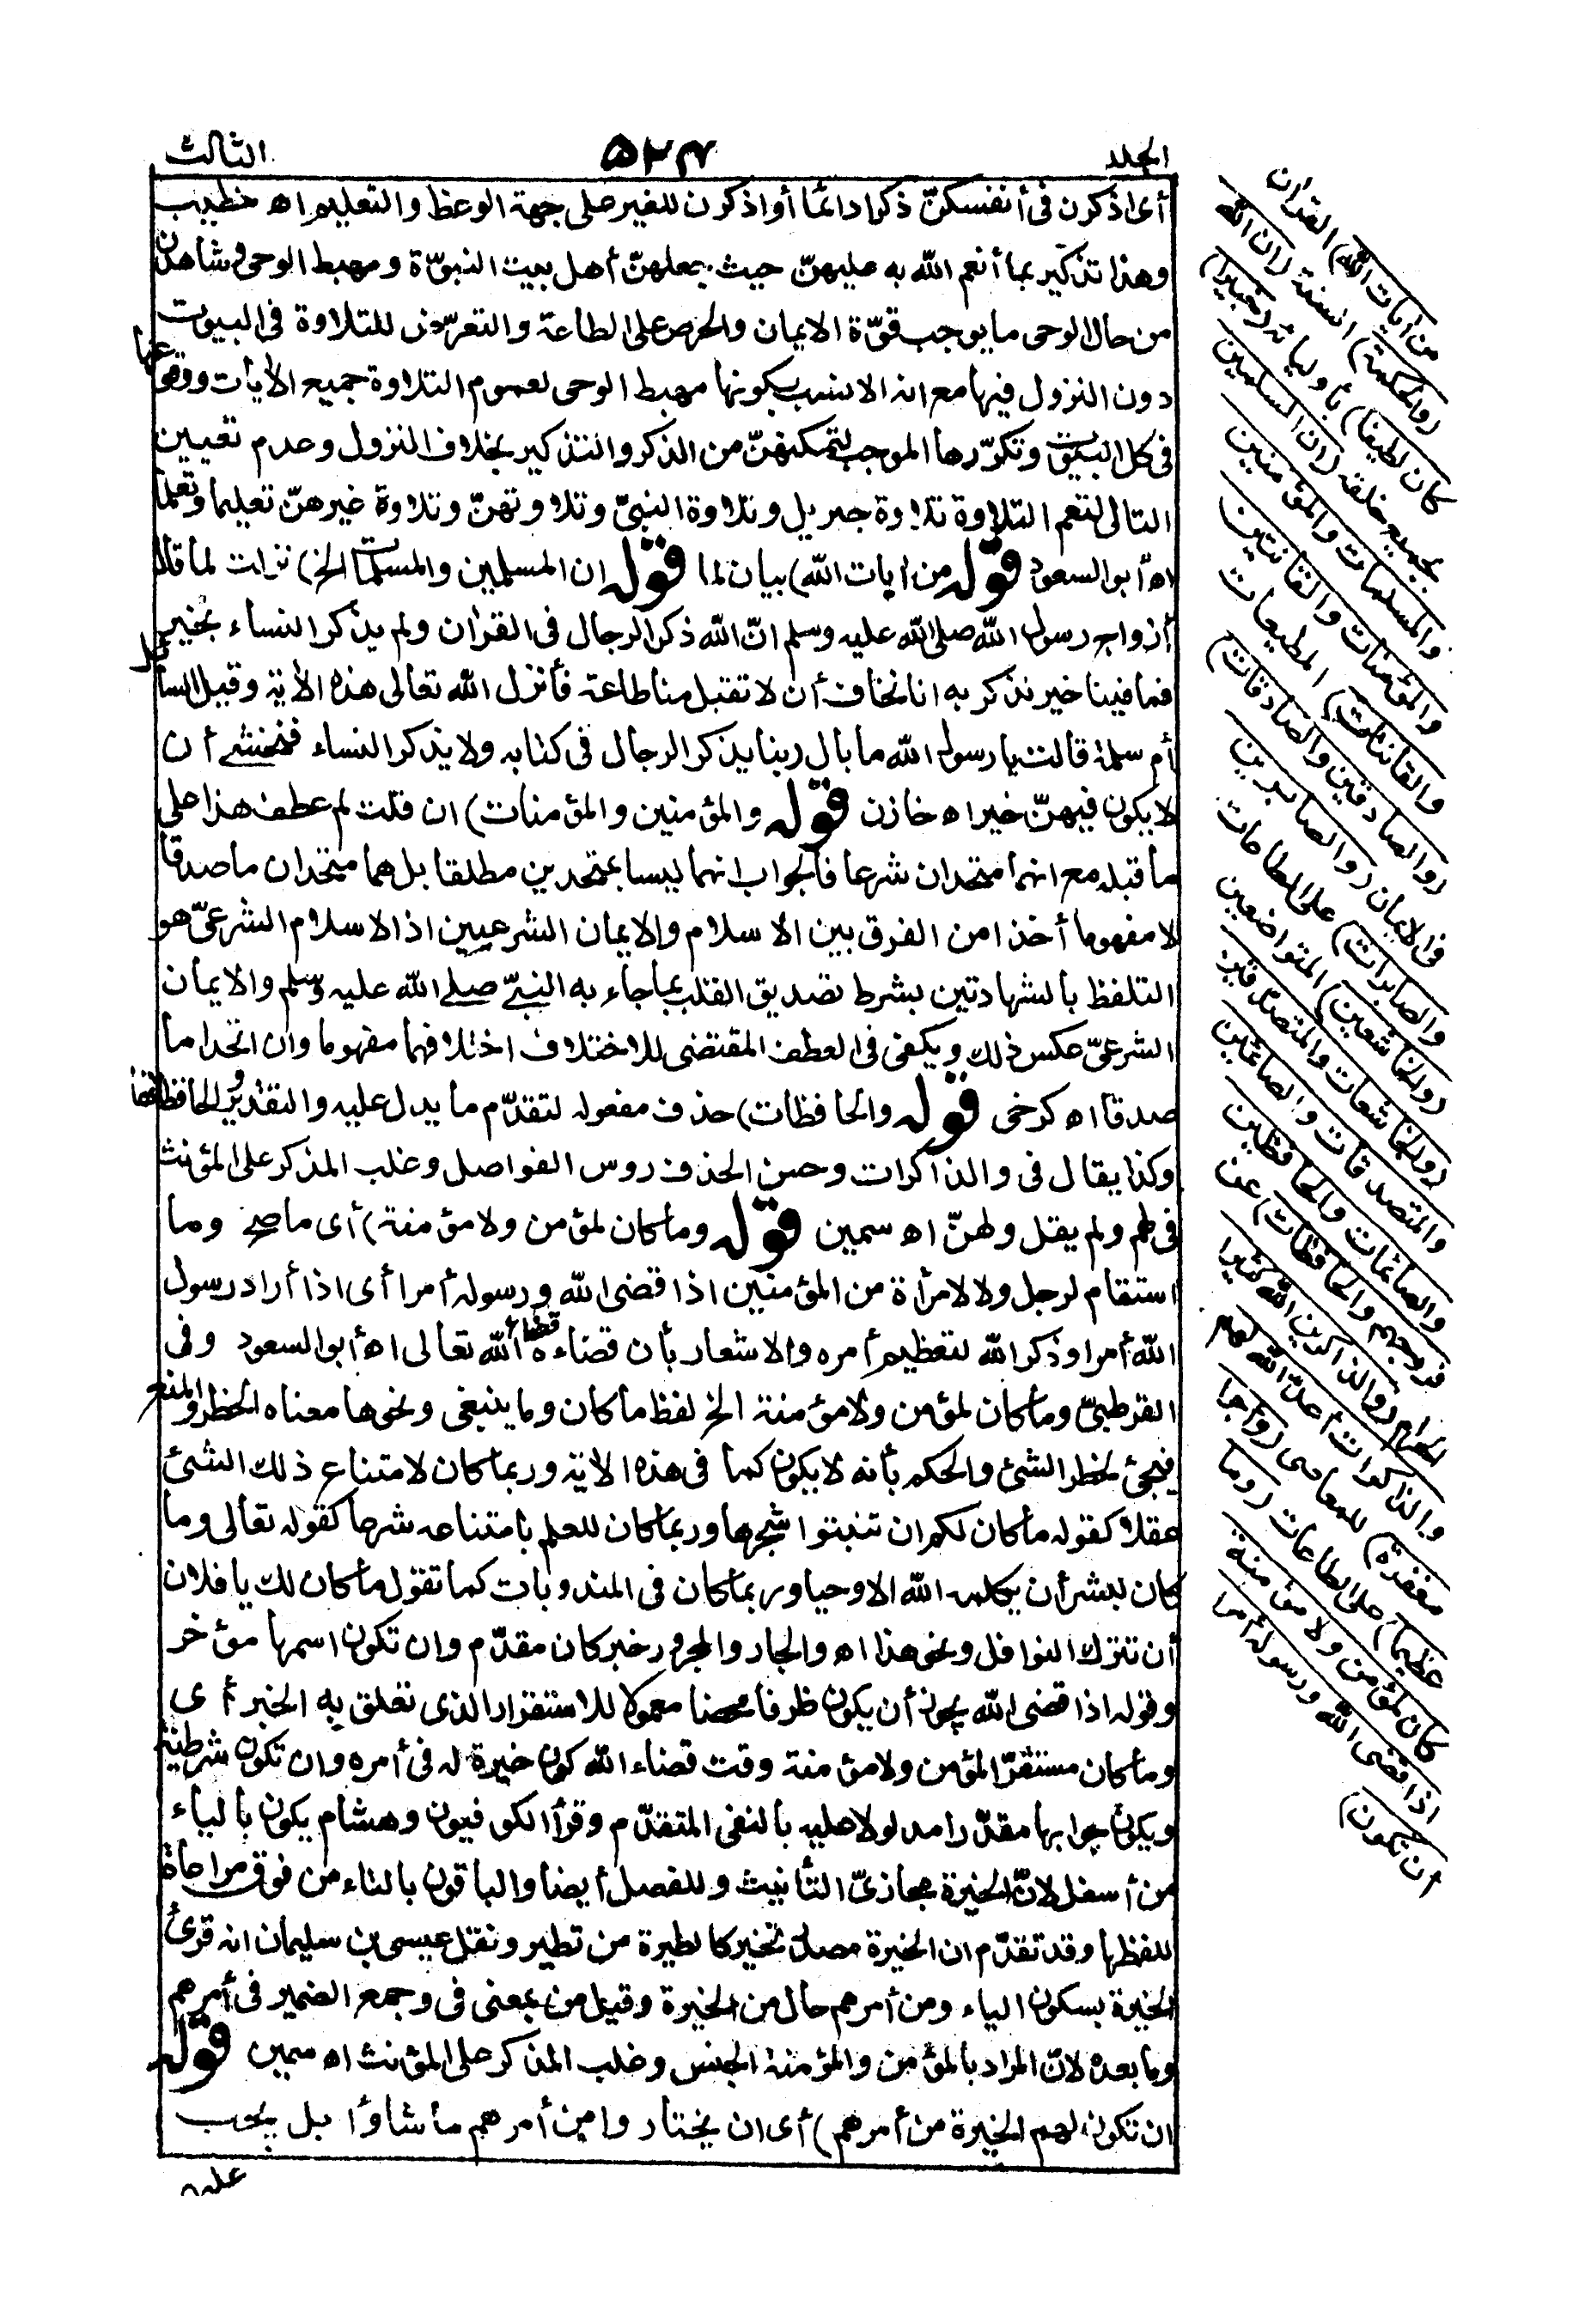 الجلد ٥٢٣ الثالث
أى اذكرن فى أنفسكنّ ذكرا دائما أو اذكرن للغير على جهة الوعظ والتعليم اه خطيب
وهذا تذكير بما أنعم الله به عليهنّ حيث جعلهنّ أهل بيت النبوّة ومهبط الوحى وشاهدن
من حال الوحى ما يوجب قوّة الايمان والحرص على الطاعة والتعرّض للتلاوة فى البيوت
دون النزول فيها مع انه الانسب بكونها مهبط الوحى لعموم التلاوة جميع الأيات ووقوعها
فى كل البيوت وتكرّرها الموجب لتمكنهنّ من الذكر والتذكير بخلاف النزول وعدم تعيين
التالى لتعم التلاوة تلاوة جبريل وتلاوة النبىّ وتلاوتهنّ وتلاوة غيرهنّ تعليما وتعلما
اه أبو السعود قوله من ايات الله) بيان لما قوله ان المسلمين والمسلمات الخ) نزلت لما قال
أزواج رسول الله صلى الله عليه وسلم انّ الله ذكر الرجال فى القران ولم يذكر النساء بخير
فما فينا خير نذكر به انا نخاف أن لا تقبل منا طاعة فأنزل الله تعالى هذه الأية وقيل السائل
أم سلمة قالت يا رسول الله ما بال ربنا يذكر الرجال فى كتابه ولا يذكر النساء فنخشى أن
لا يكون فيهنّ خير اه خازن قوله والمؤمنين والمؤمنات) ان قلت لم عطف هذا على
ما قبله مع انهما متحدان شرعا فالجواب انهما ليسا بمتحدين مطلقا بل هما متحدان ماصدقا
لا مفهوما أخذا من الفرق بين الاسلام والايمان الشرعيين اذ الاسلام الشرعىّ هو
التلفظ بالشهادتين بشرط تصديق القلب بما جاء به النبىّ صلى الله عليه وسلم والايمان
الشرعىّ عكس ذلك ويكفى فى العطف المقتضى للاختلاف اختلافهما مفهوما وان اتحدا ما
صدقا اه كرخى قوله والحافظات) حذف مفعوله لتقدّم ما يدل عليه والتقدير والحافظاتها
وكذا يقال فى والذاكرات وحسن الحذف روس الفواصل وغلب المذكر على المؤنث
فى لهم ولم يقل ولهنّ اه سمين قوله وما كان لمؤمن ولا مؤمنة) أى ما صح وما
استقام لرجل ولا لامرأة من المؤمنين اذا قضى الله ورسوله أمرا أى اذا أراد رسول
الله أمرا وذكر الله لتعظيم أمره والاشعار بأن قضاءه قضاء الله تعالى اه أبو السعود وفى
القرطبىّ وما كان لمؤمن ولا مؤمنة الخ لفظ ما كان وما ينبغى ونحوها معناه الحظر والمنع
فيجئ لحظر الشئ والحكم بأنه لا يكون كما فى هذه الأية وربما كان لامتناع ذلك الشئ
عقلا كقوله ما كان لكم ان تنبتوا شجرها وربما كان للعلم بامتناعه شرعا كقوله تعالى وما
كان لبشر أن يكلمه الله الا وحيا وربما كان فى المندوبات كما تقول ما كان لك يا فلان
أن تترك النوافل ونحو هذا اه والجار والمجرور خبر كان مقدّم وان تكون اسمها مؤخر
وقوله اذا قضى الله يجوز أن يكون ظرفا محضا معمولا للاستقرار الذى تعلق به الخبر أى
وما كان مستقرّا لمؤمن ولا مؤمنة وقت قضاء الله كون خيرة له فى أمره وان تكون شرطية
ويكون جوابها مقدّرا مدلولا عليه بالنفى المتقدّم وقرأ الكوفيون وهشام يكون بالياء
من أسفل لانّ الخيرة مجازىّ التأنيث وللفصل أيضا والباقون بالتاء من فوق مراعاة
للفظها وقد تقدّم ان الخيرة مصدر تخير كالطيرة من تطير ونقل عيسى بن سليمان انه قرئ
الخيرة بسكون الياء ومن أمرهم حال من الخيرة وقيل من بمعنى فى وجمع الضمير فى أمرهم
وما بعده لانّ المراد بالمؤمن والمؤمنة الجنس وغلب المذكر على المؤنث اه سمين قوله
ان تكون لهم الخيرة من أمرهم) أى ان يختاروا من أمرهم ما شاؤا بل يجب
عليه
من أيات الله) القران
(والحكمة) السنة (ان الله
كان لطيفا) بأوليائه (خبيرا)
بجميع خلقه (ان المسلمين
والمسلمات والمؤمنين
والمؤمنات والقانتين
والقانتات) المطيعات
(والصادقين والصادقات)
فى الايمان (والصابرين
والصابرات) على الطاعات
(والخاشعين) المتواضعين
(والخاشعات والمتصدقين
والمتصدقات والصائمين
والصائمات والحافظين
فروجهم والحافظات) عن
الحرام (والذاكرين الله كثيرا
والذاكرات أعدّ الله لهم
مغفرة) للمعاصى (وأجرا
عظيما) على الطاعات (وما
كان لمؤمن ولا مؤمنة
اذا قضى الله ورسوله أمرا
أن تكون)